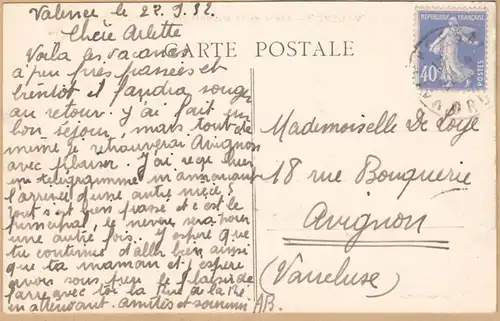 Valence le 27.9.32
Chère Arlette
Voilà les vacances
CARTE POSTALE
à peu près passées et
bientôt il faudra songer
au retour. J'ai fait un
bon séjour, mais tout de
même je retrouverai Avignon
avec plaisir. J'ai reçu hier
un télégramme m'annonçant
l'arrivée d'une autre nièce
tout s'est bien passé et c'est le
principal, le neveu sera pour
une autre fois. J'espère que
tu continues d'aller bien ainsi
que ta maman et j'espère
avoir sous peu le plaisir de
avec toi la rue de la Ré
en attendant. amitiés et souvenir
AB.
REPUBLIQUE FRANÇAISE
40c
POSTES
Mademoiselle De Loye
18 rue Bouquerie
Avignon
(Vaucluse)